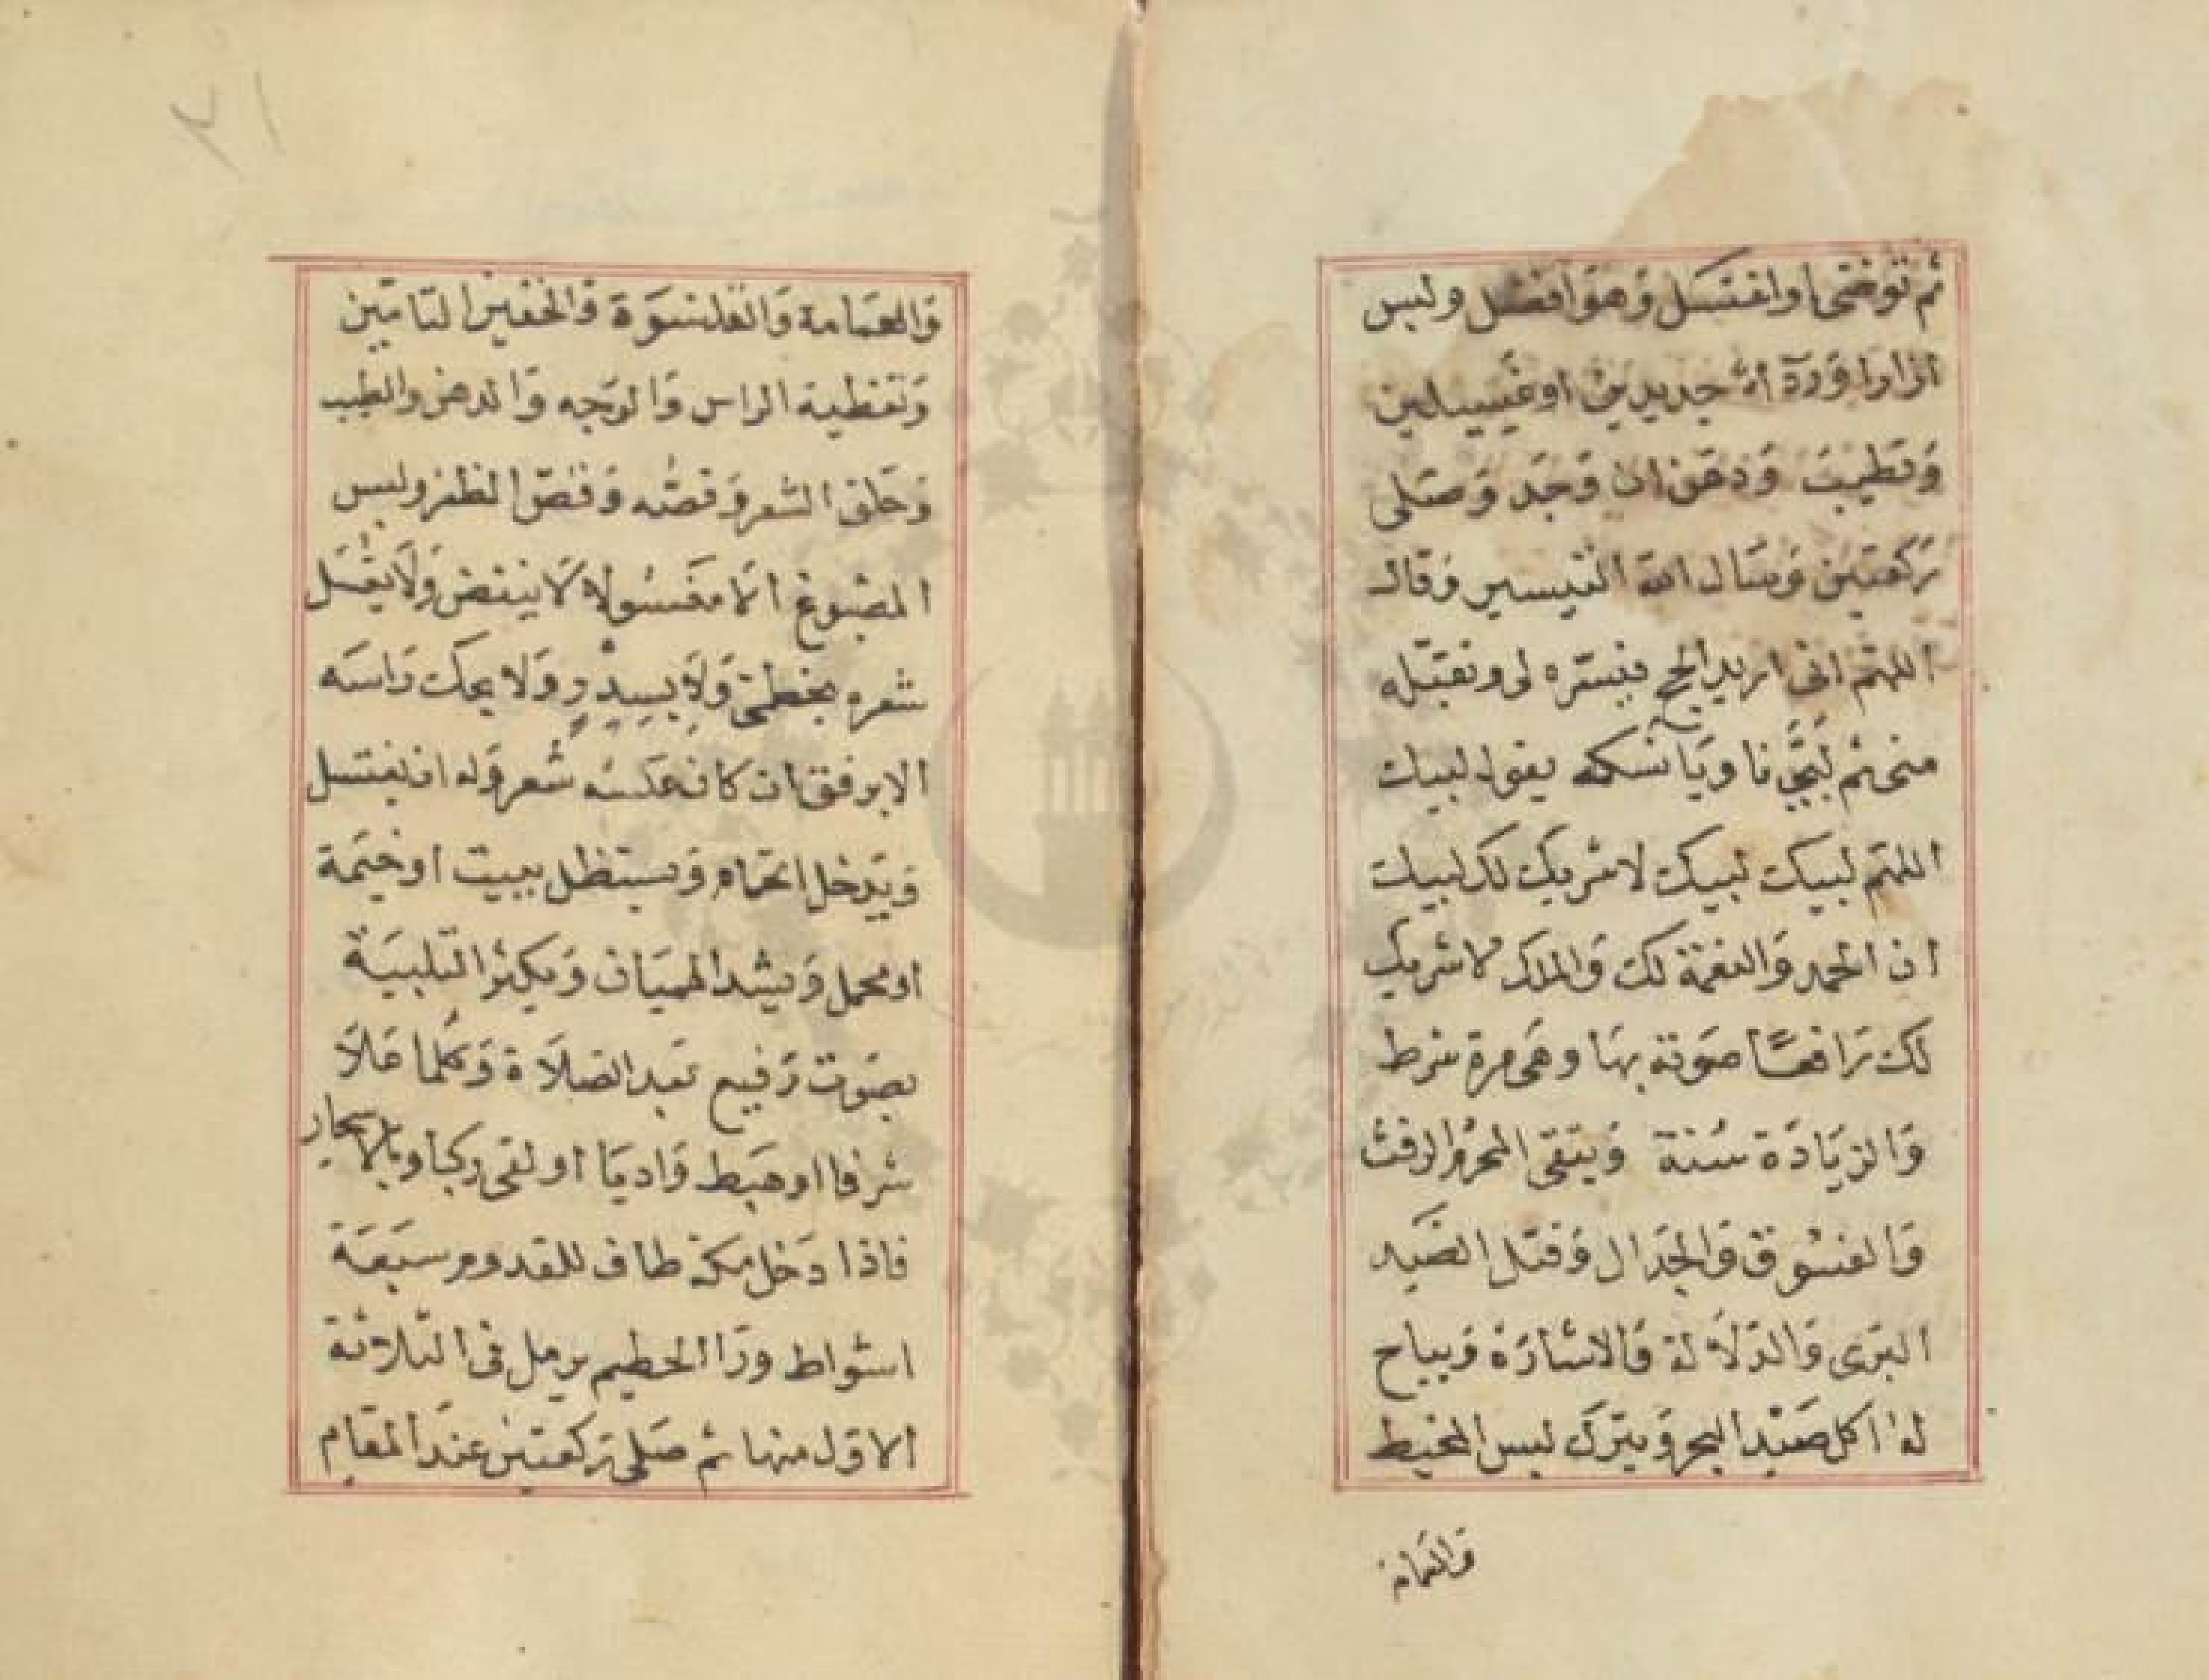 ثم توضئ او اغتسل وهو افضل ولبس
ازارا وردآء جديدين او غسيلين
وتطيب ودهن ان وجد وصلى
ركعتين وسال الله التيسير وقال
اللهم انى اريد الحج فيسره لى وتقبله
منى ثم لبى ناويا نسكه يقول لبيك
اللهم لبيك لبيك لا شريك لك لبيك
ان الحمد والنعمة لك والملك لا شريك
لك رافعا صوته بها وهى مرة شرط
والزيادة سنة ويتقى المحرم الرفث
والفسوق والجدال وقتل الصيد
البرى والدلالة والاشارة ويباح
له اكل صيد البحر ويترك لبس المخيط
والعمامة
٣١
والعمامة والقلنسوة والخفين التامين
وتغطية الراس والوجه والدهن والطيب
وحلق الشعر وقصه وقص الظفر ولبس
المصبوغ الا مغسولا لا ينفض ولا يغسل
شعره بخطمى ولا بسدر ولا يحك راسه
الا برفق ان كان عليه شعر وله ان يغتسل
ويدخل الحمام ويستظل ببيت او خيمة
او محمل ويشد الهميان ويكثر التلبية
بصوت رفيع بعد الصلاة وكلما علا
شرفا او هبط واديا او لقى ركبا وبالاسحار
فاذا دخل مكة طاف للقدوم سبعة
اشواط ورا الحطيم يرمل فى الثلاثة
الاول منها ثم صلى ركعتين عند المقام